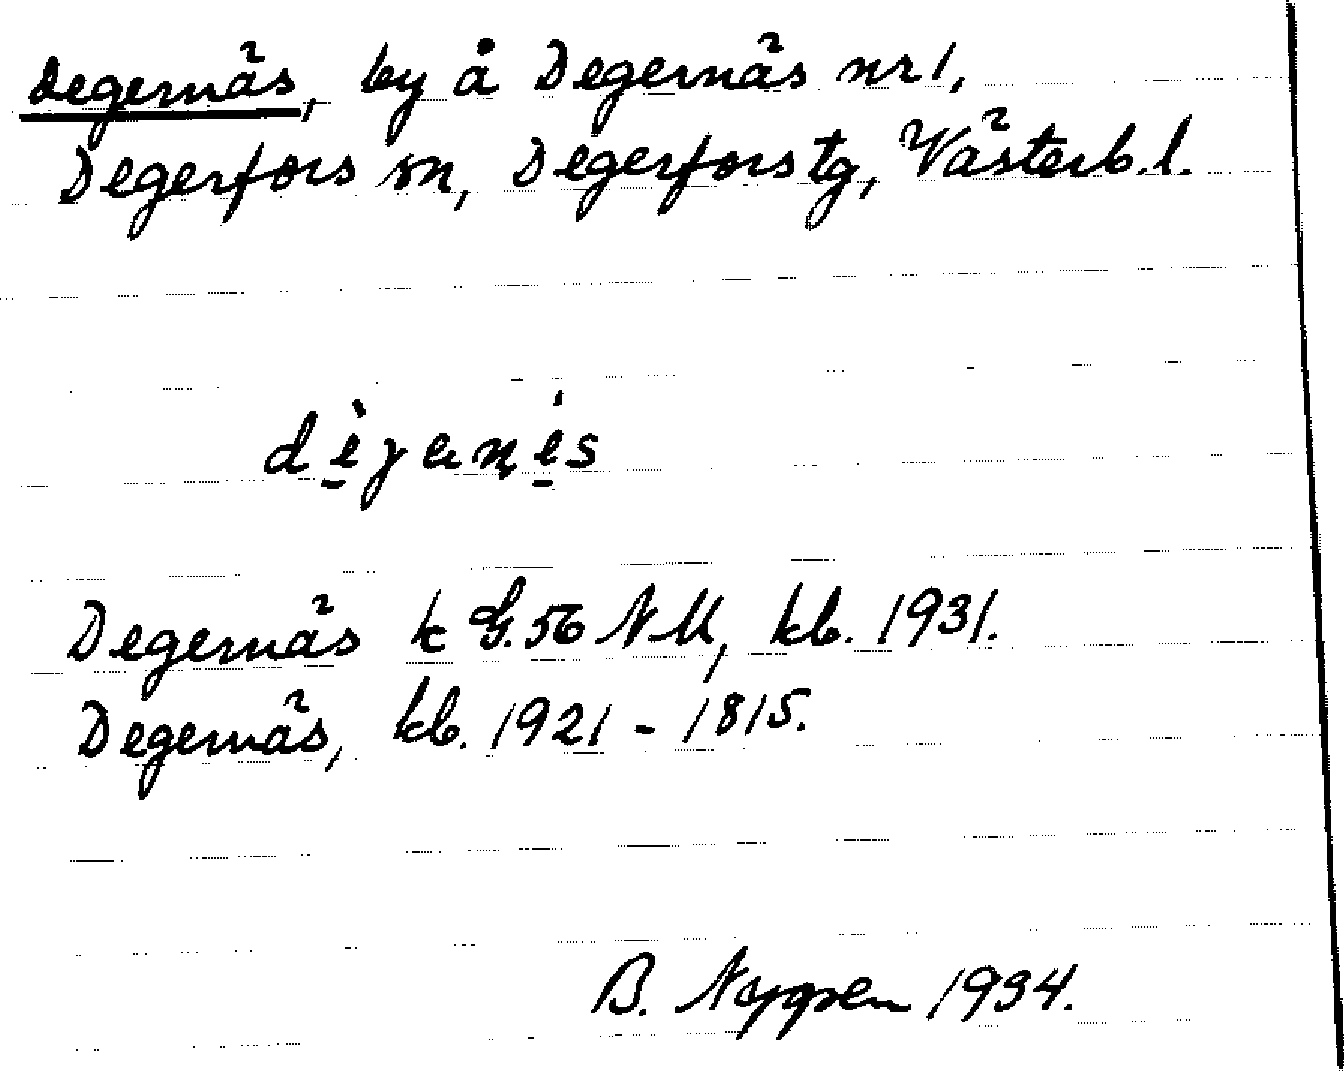 Degernäs, by å Degernäs nr 1,
Degerfors sn, Degerfors tg, Västerb. l.
Degernäs k G. 56 NM, kb. 1931.
Degernäs, kb. 1921 - 1815.
B. Nygren 1934.